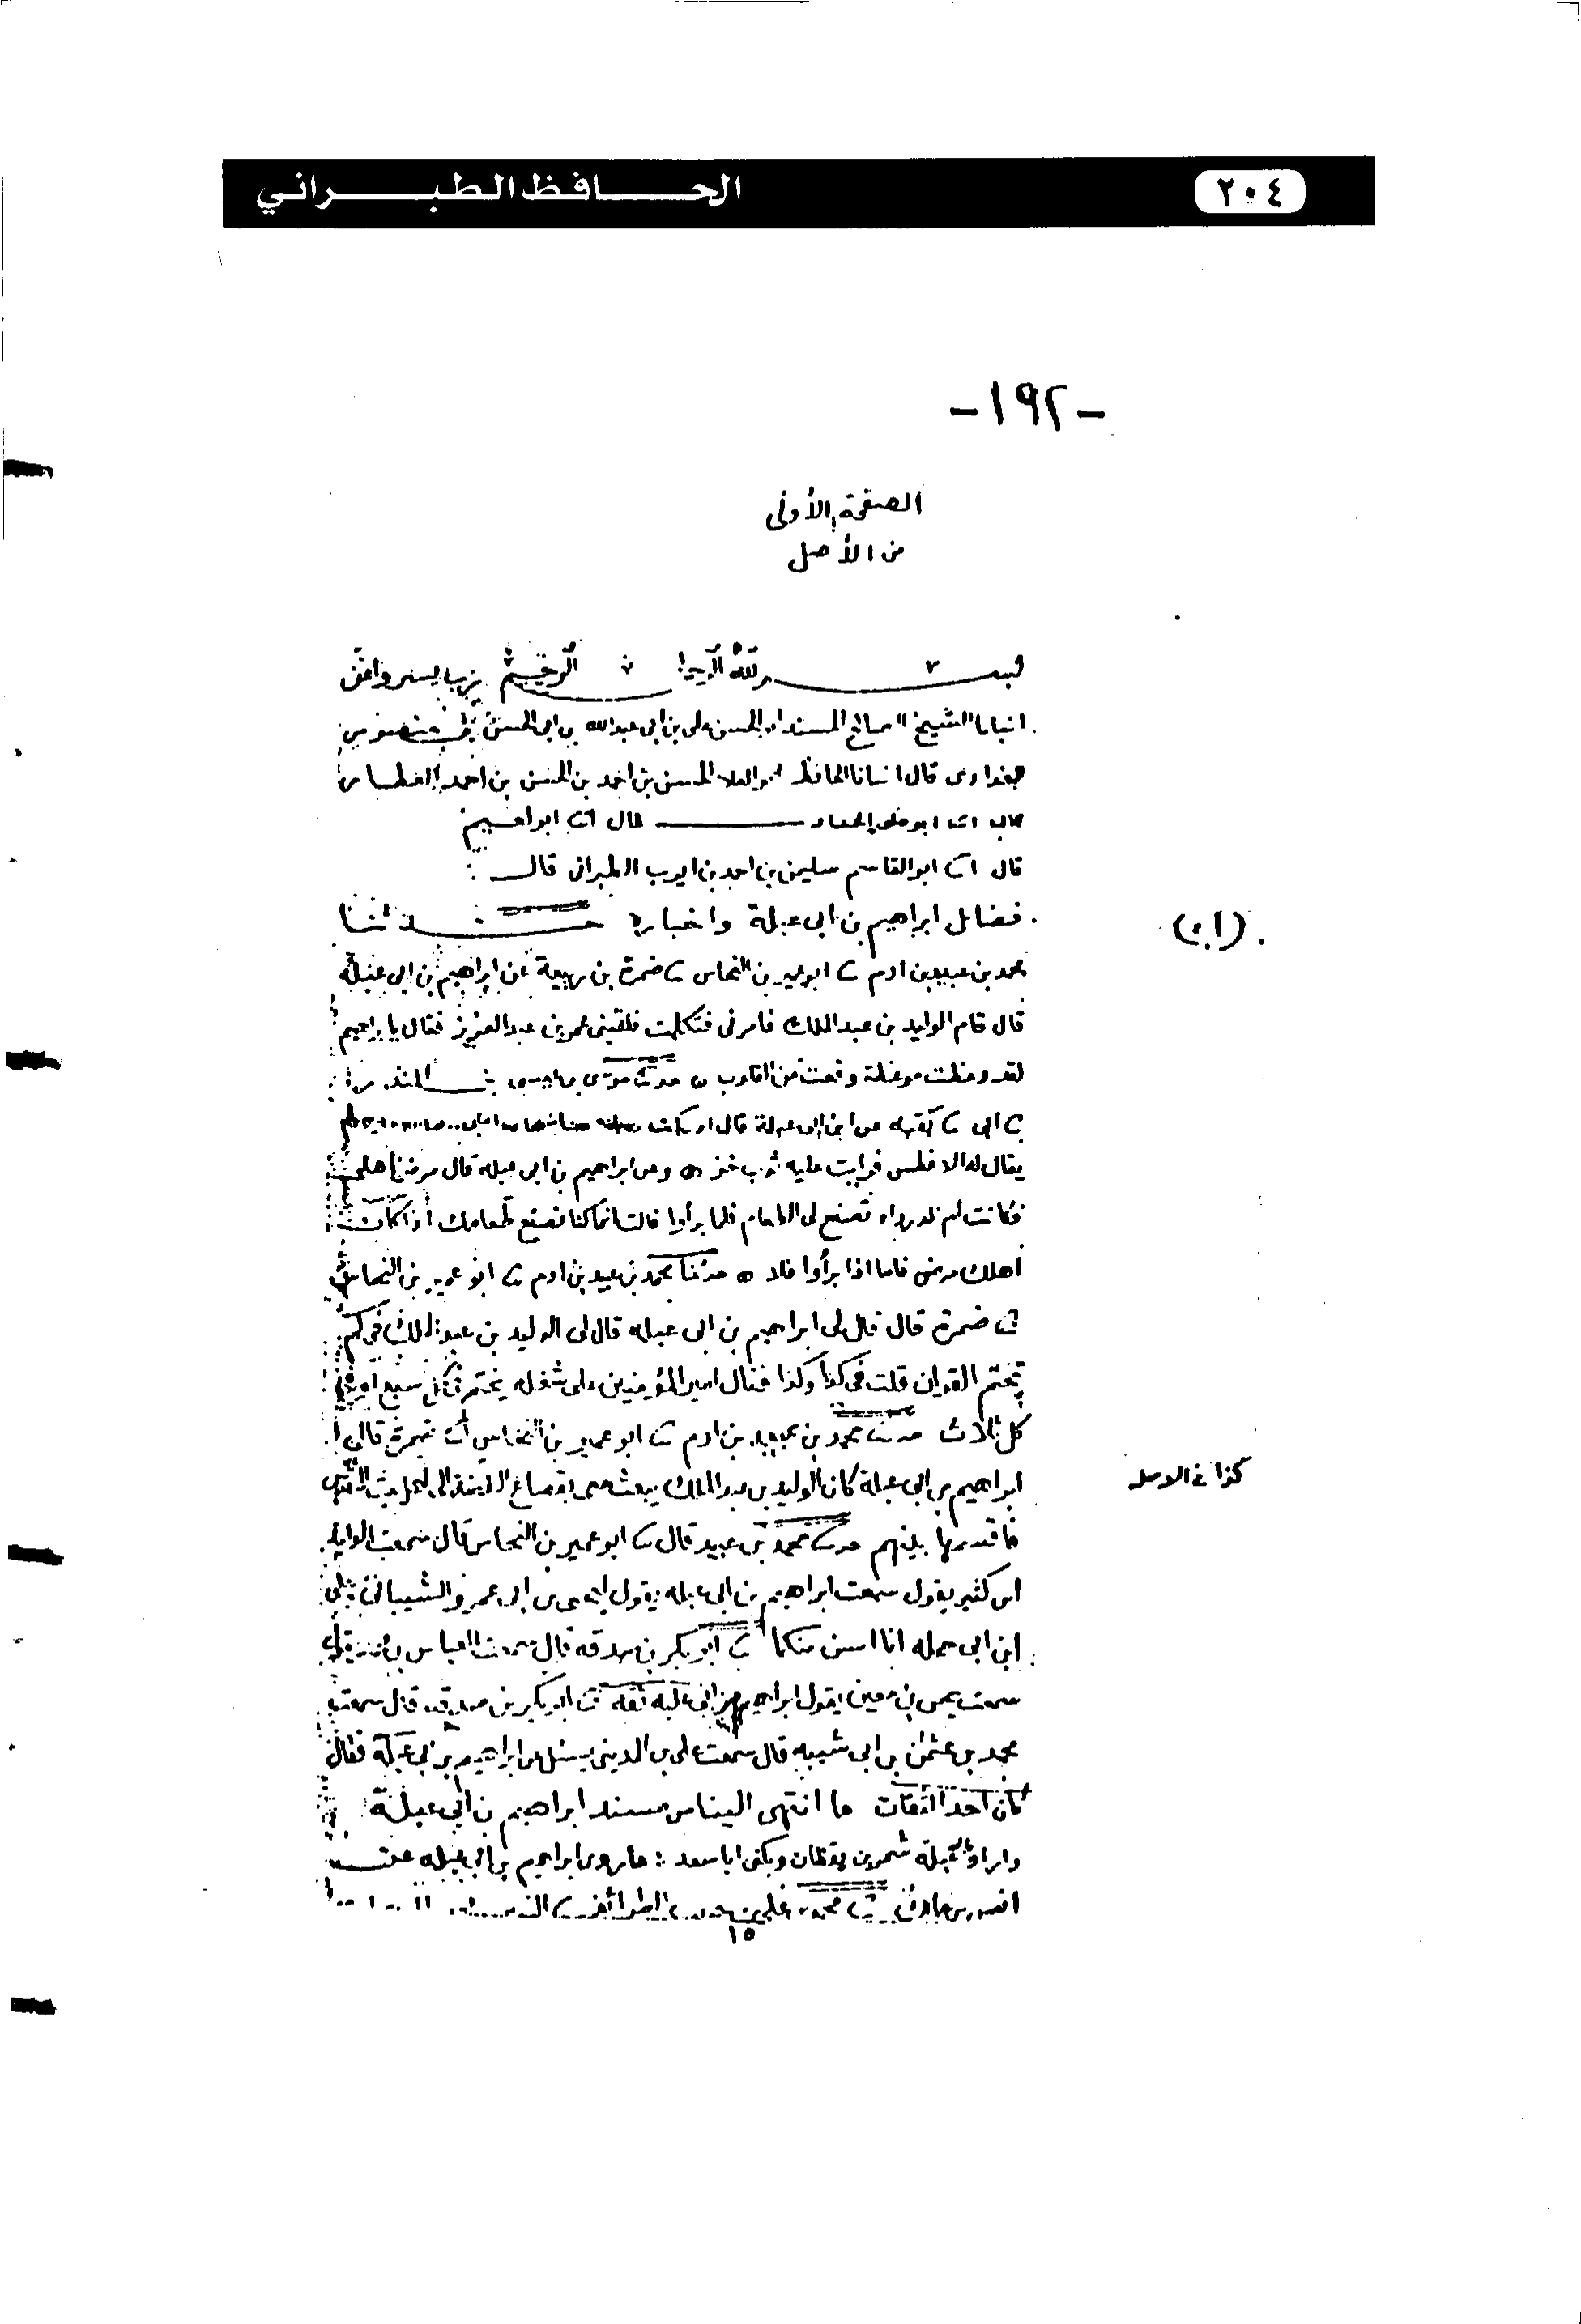 الحافظ الطبراني
٢٠٤
-١٩٢-
الصفحة الأولى
من الأصل
بسم الله الرحمن الرحيم رب يسر واعن
انبانا الشيخ الصالح المسند ابو الحسن علي بن ابي عبدالله بن ابي الحسن بن
البغدادي قال انبانا الحافظ ابو العلا الحسن بن احمد بن الحسن بن احمد العطار
قال انا ابو علي الحداد قال انا ابو نعيم
قال انا ابو القاسم سليمن بن احمد بن ايوب الطبراني قال
فضائل ابراهيم بن ابي عبلة واخباره حدثنا
(١ب)
محمد بن عبيد بن ادم نا ابو عمير بن النحاس نا ضمرة بن ربيعة عن ابراهيم بن ابي عبلة
قال قام الوليد بن عبد الملك فامرني فتكلمت فلقيني عمر بن عبد العزيز فقال يا ابراهيم
لقد وعظت موعظة وقعت من القلوب حدثنا موسى بن عيسى بن المنذر
نا ابي نا بقية عن ابن ابي عبلة قال
يقال له الافطس فرايت عليه ثوب خز وعن ابراهيم بن ابي عبلة قال مرض اهلي
فكانت ام الدرداء تصنع لي الطعام فلما برأوا قالت انما كنا نصنع طعامك اذ كان
اهلك مرضى فاما اذا برأوا فلا حدثنا محمد بن عبيد بن ادم نا ابو عمير بن النحاس
نا ضمرة قال قال لي ابراهيم بن ابي عبلة قال لي الوليد بن عبد الملك في كم
تختم القران قلت في كذا وكذا فقال امير المؤمنين على شغله يختم في سبع او في
كل ثلاث حدثنا محمد بن عبيد بن ادم نا ابو عمير بن النحاس نا ضمرة قال
ابراهيم بن ابي عبلة كان الوليد بن عبد الملك يبعث معي بقصاع الفضة الى اهل بيت المقدس
كذا في الاصل
فاقسمها بينهم حدثنا محمد بن عبيد قال نا ابو عمير بن النحاس قال سمعت الوليد
ابن كثير يقول سمعت ابراهيم بن ابي عبلة يقول ليحيى بن ابي عمرو الشيباني
ابن ابي حمله انا اسن منكما نا ابو بكر بن صدقه قال سمعت العباس بن يقول
سمعت يحيى بن معين يقول ابراهيم بن ابي عبلة ثقه نا ابو بكر بن صدقه قال سمعت
محمد بن عثمان بن ابي شيبه قال سمعت علي بن المديني يسئل عن ابراهيم بن ابي عبلة فقال
كان احد الثقات ما انتهى الينا من مسند ابراهيم بن ابي عبلة
شمر بن يقظان ويكنى ابا سعد : ما روى ابراهيم بن ابي عبلة عن
انس بن مالك نا محمد بن علي الطرائفي
١٥